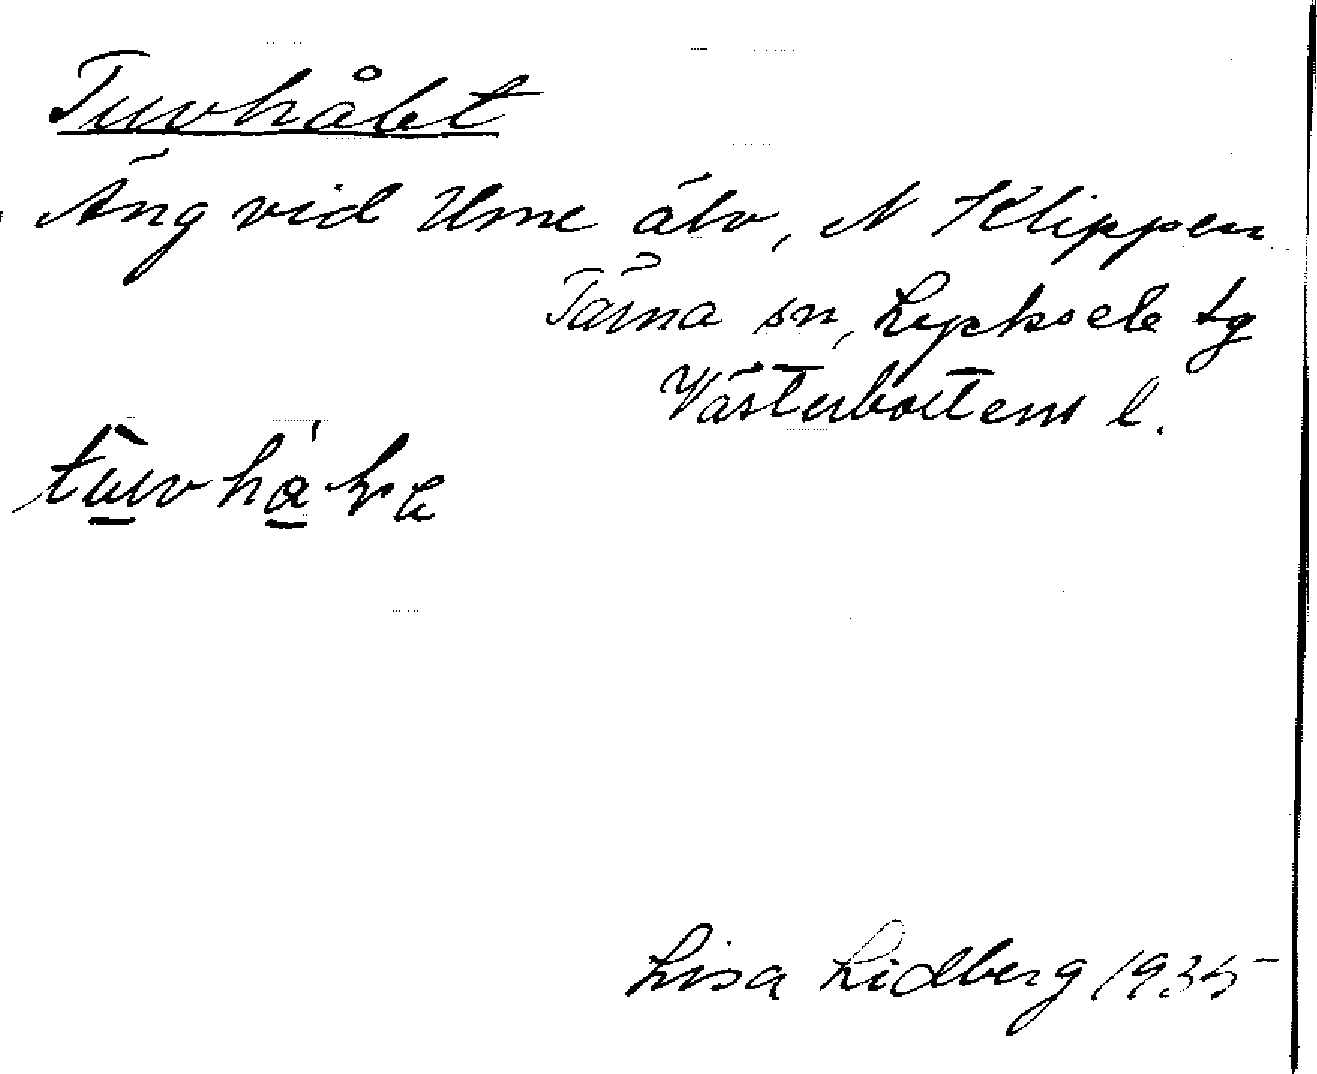 Tuvhålet
Äng vid Ume älv, N Klippen
Tärna sn, Lycksele tg
Västerbottens l.
Lisa Lidberg 1935